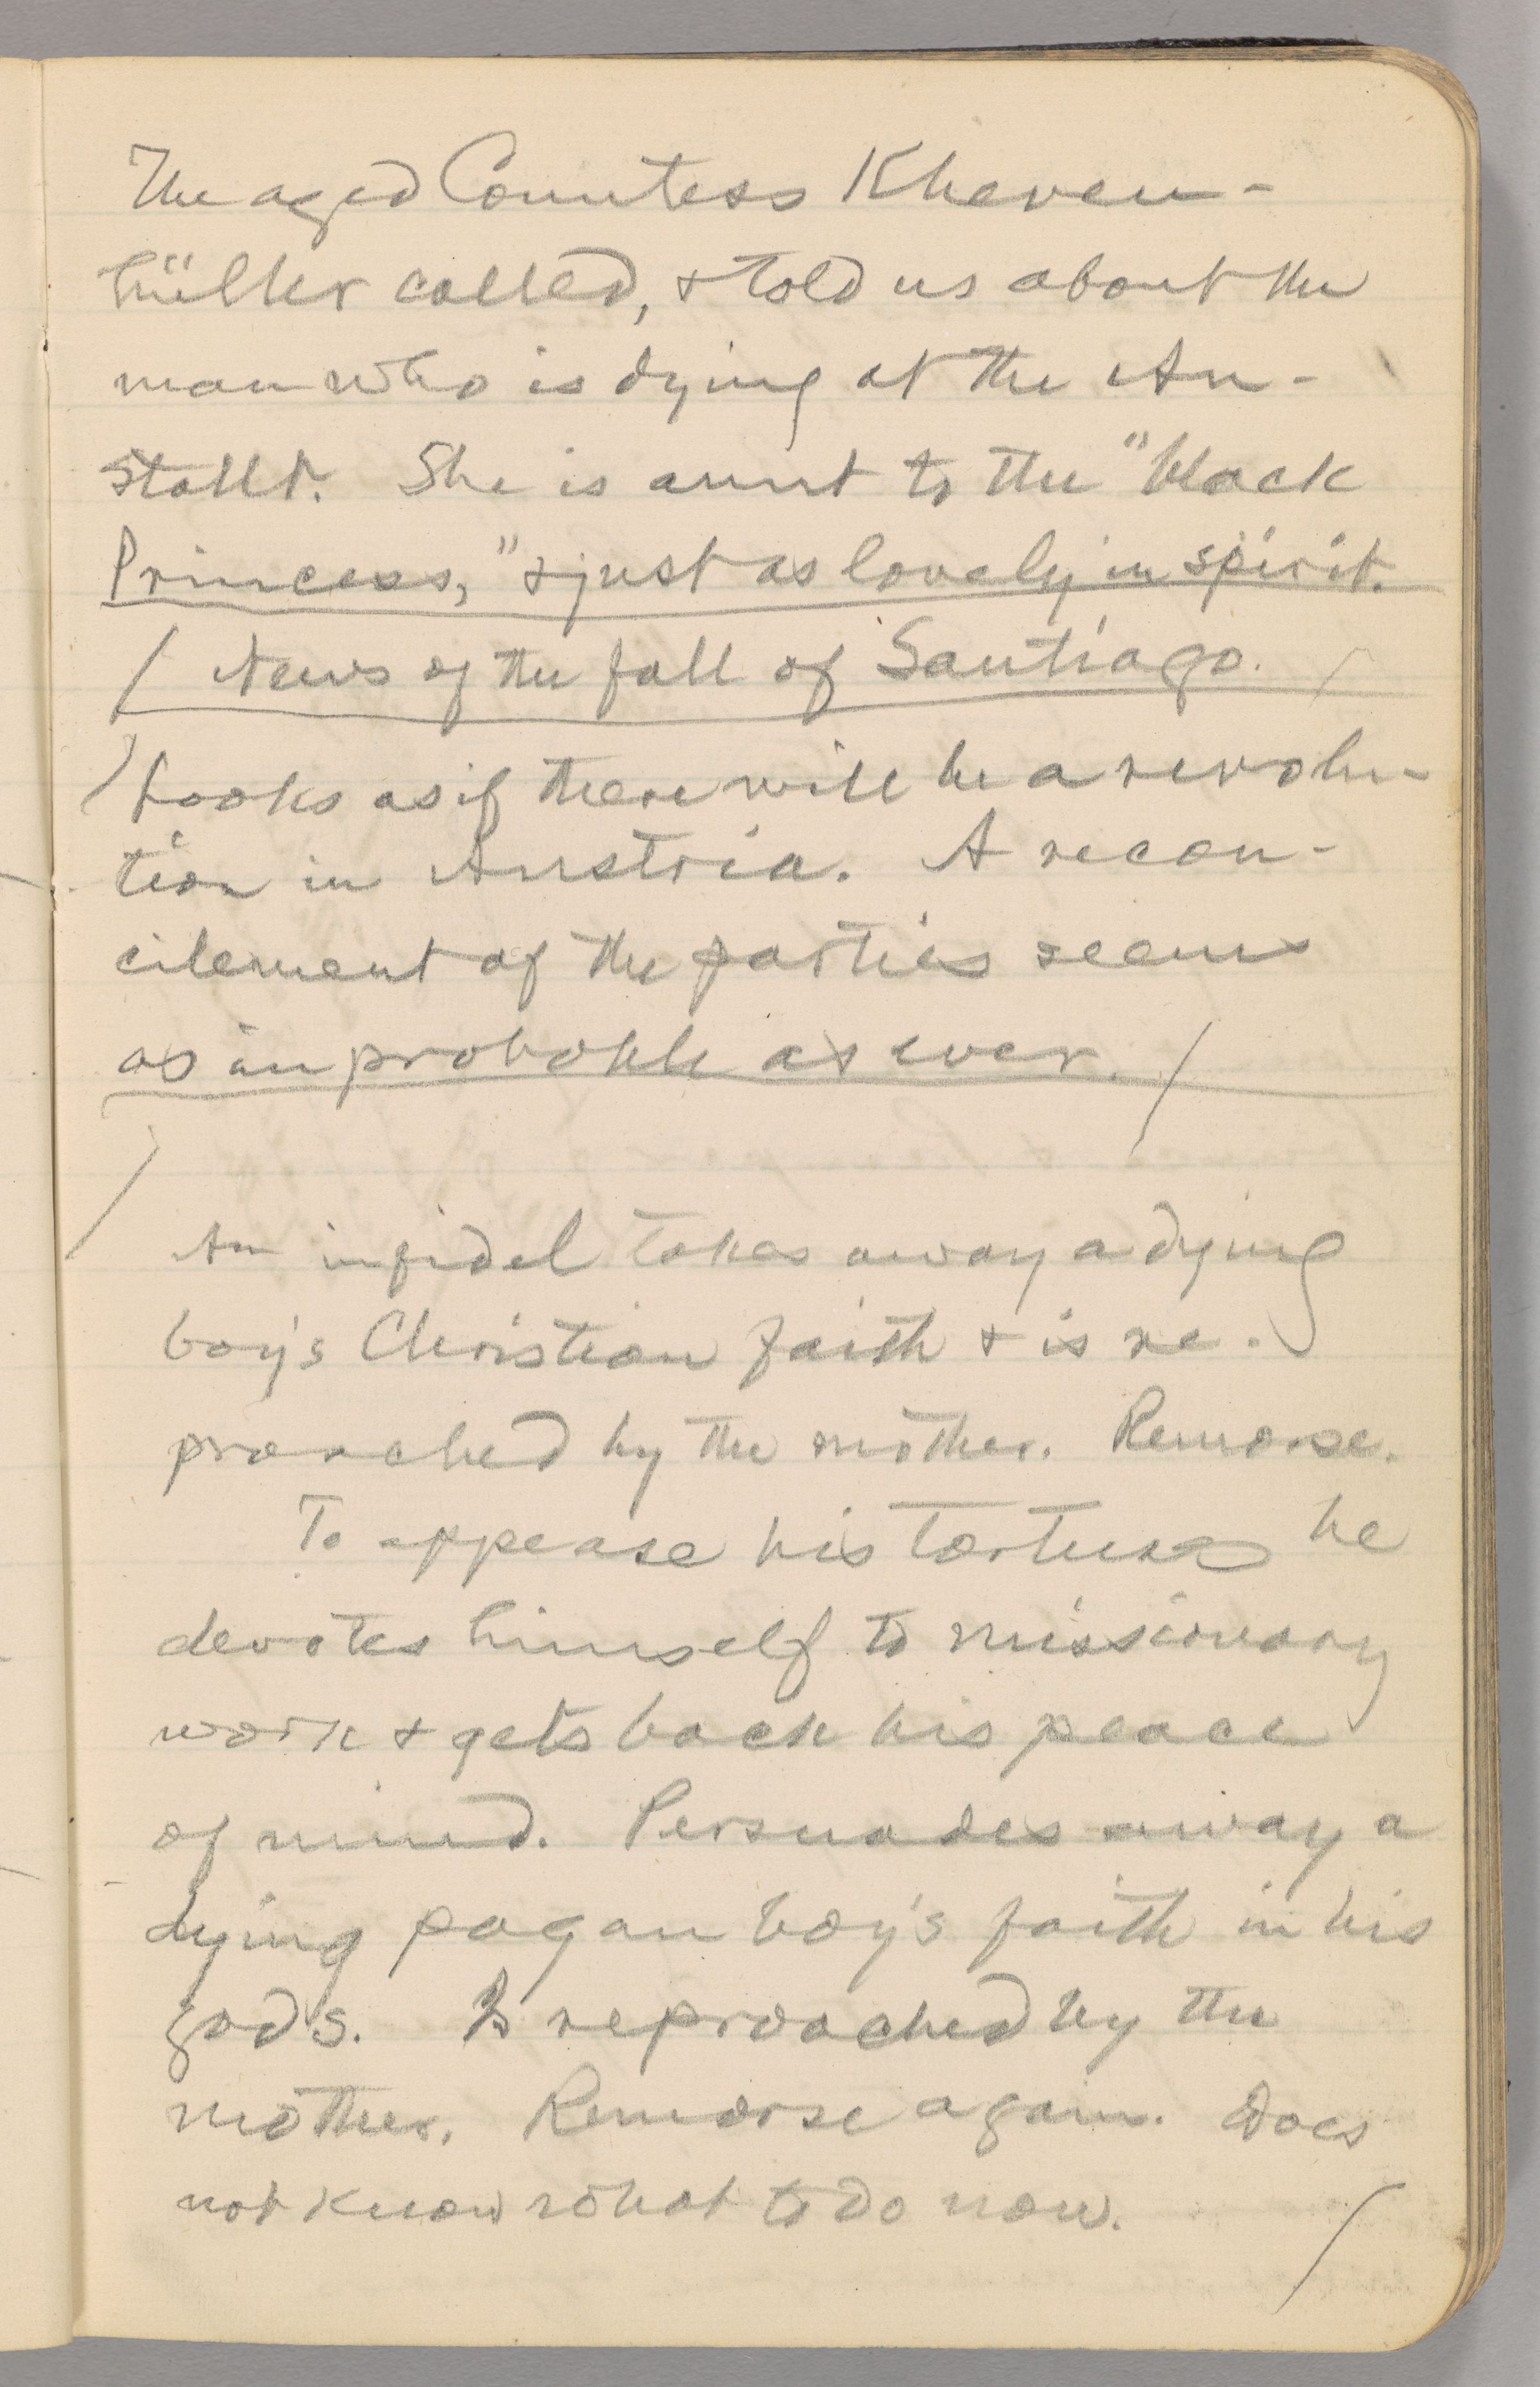 The aged Countess Kheven-
hüller called, & told us about the
man who is dying at the An-
stallt. She is aunt to the "black
Princess," & just as lovely in spirit.
/ News of the fall of Santiago. /
Looks as if there will be a revolu-
tion in Austria. A recon-
cilement of the parties seems
as improbable as ever. /
/
An infidel takes away a dying
boy's Christian faith & is re-
proached by the mother. Remorse.
To appease his tortures he
devotes himself to missionary
work & gets back his peace
of mind. Persuades away a
dying pagan boy's faith in his
gods. Is reproached by the
mother. Remorse again. Does
not know what to do now. /